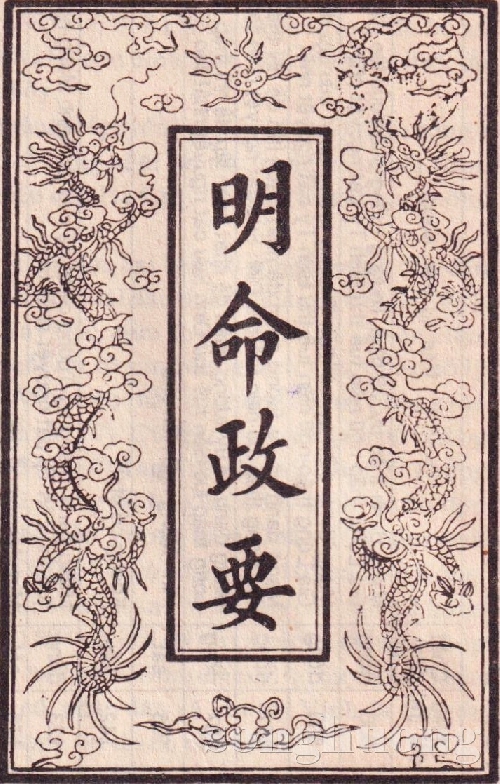 明命政要
songhuong